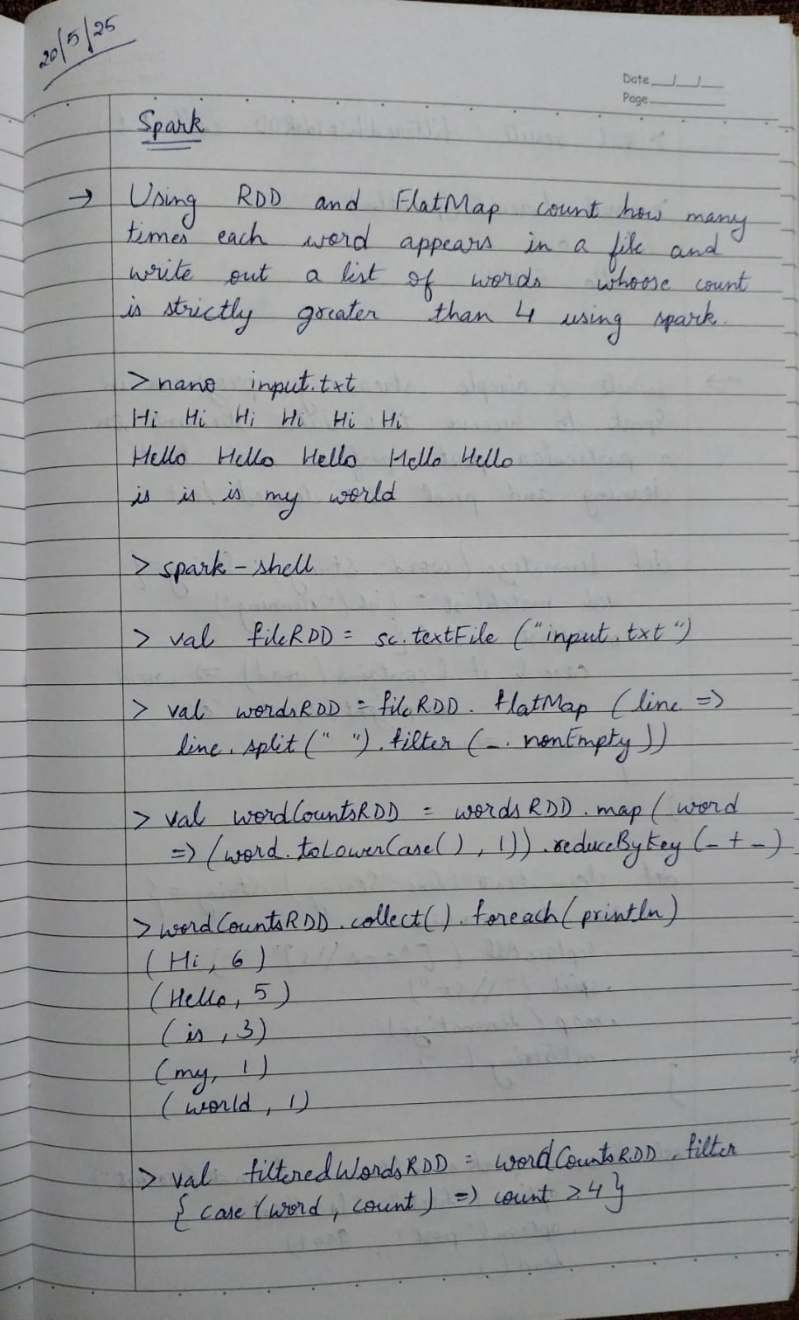 20/5/25
Date __/__/__
Page
Spark
→ Using RDD and FlatMap count how many
times each word appears in a file and
write out a list of words whoose count
is strictly greater than 4 using spark.
> nano input.txt
Hi Hi Hi Hi Hi Hi
Hello Hello Hello Hello Hello
is is is my world
> spark-shell
> val fileRDD = sc.textFile ("input.txt")
> val wordsRDD = fileRDD.flatMap (line =>
line.split(" ").filter (_.nonEmpty))
> val wordCountsRDD = wordsRDD.map(word
=> (word.toLowerCase(), 1)).reduceByKey(_+_)
> wordCountsRDD.collect().foreach(println)
(Hi, 6)
(Hello, 5)
(is, 3)
(my, 1)
(world, 1)
> val filteredWordsRDD = wordCountsRDD.filter
{ case (word, count) => count > 4 }